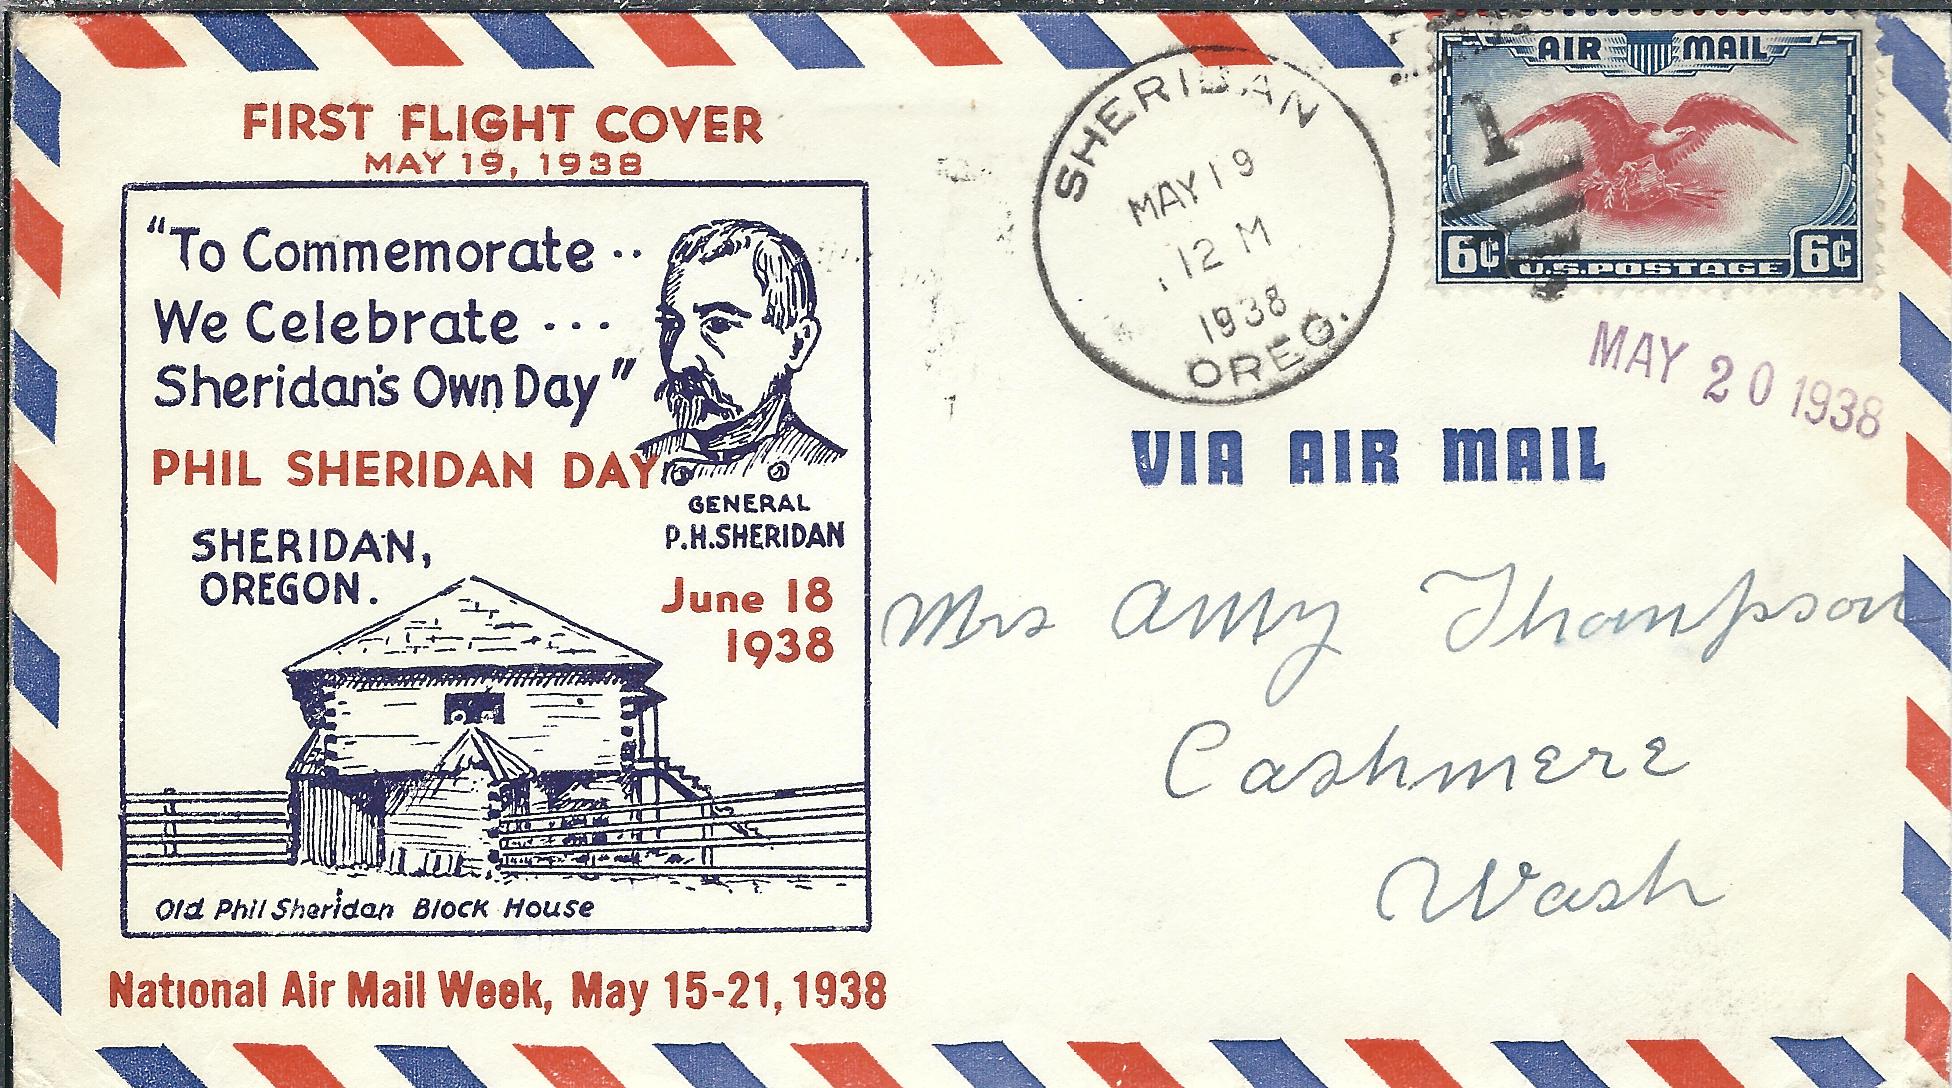 FIRST FLIGHT COVER
MAY 19, 1938
"To Commemorate ..
We Celebrate ...
Sheridan's Own Day"
PHIL SHERIDAN DAY
GENERAL
P.H.SHERIDAN
SHERIDAN,
OREGON.
June 18
1938
Old Phil Sheridan Block House
National Air Mail Week, May 15-21, 1938
SHERIDAN
MAY 19
12 M
1938
OREG.
AIR MAIL
1
6¢ U.S. POSTAGE 6¢
MAY 20 1938
VIA AIR MAIL
Mrs Amy Thompson
Cashmere
Wash